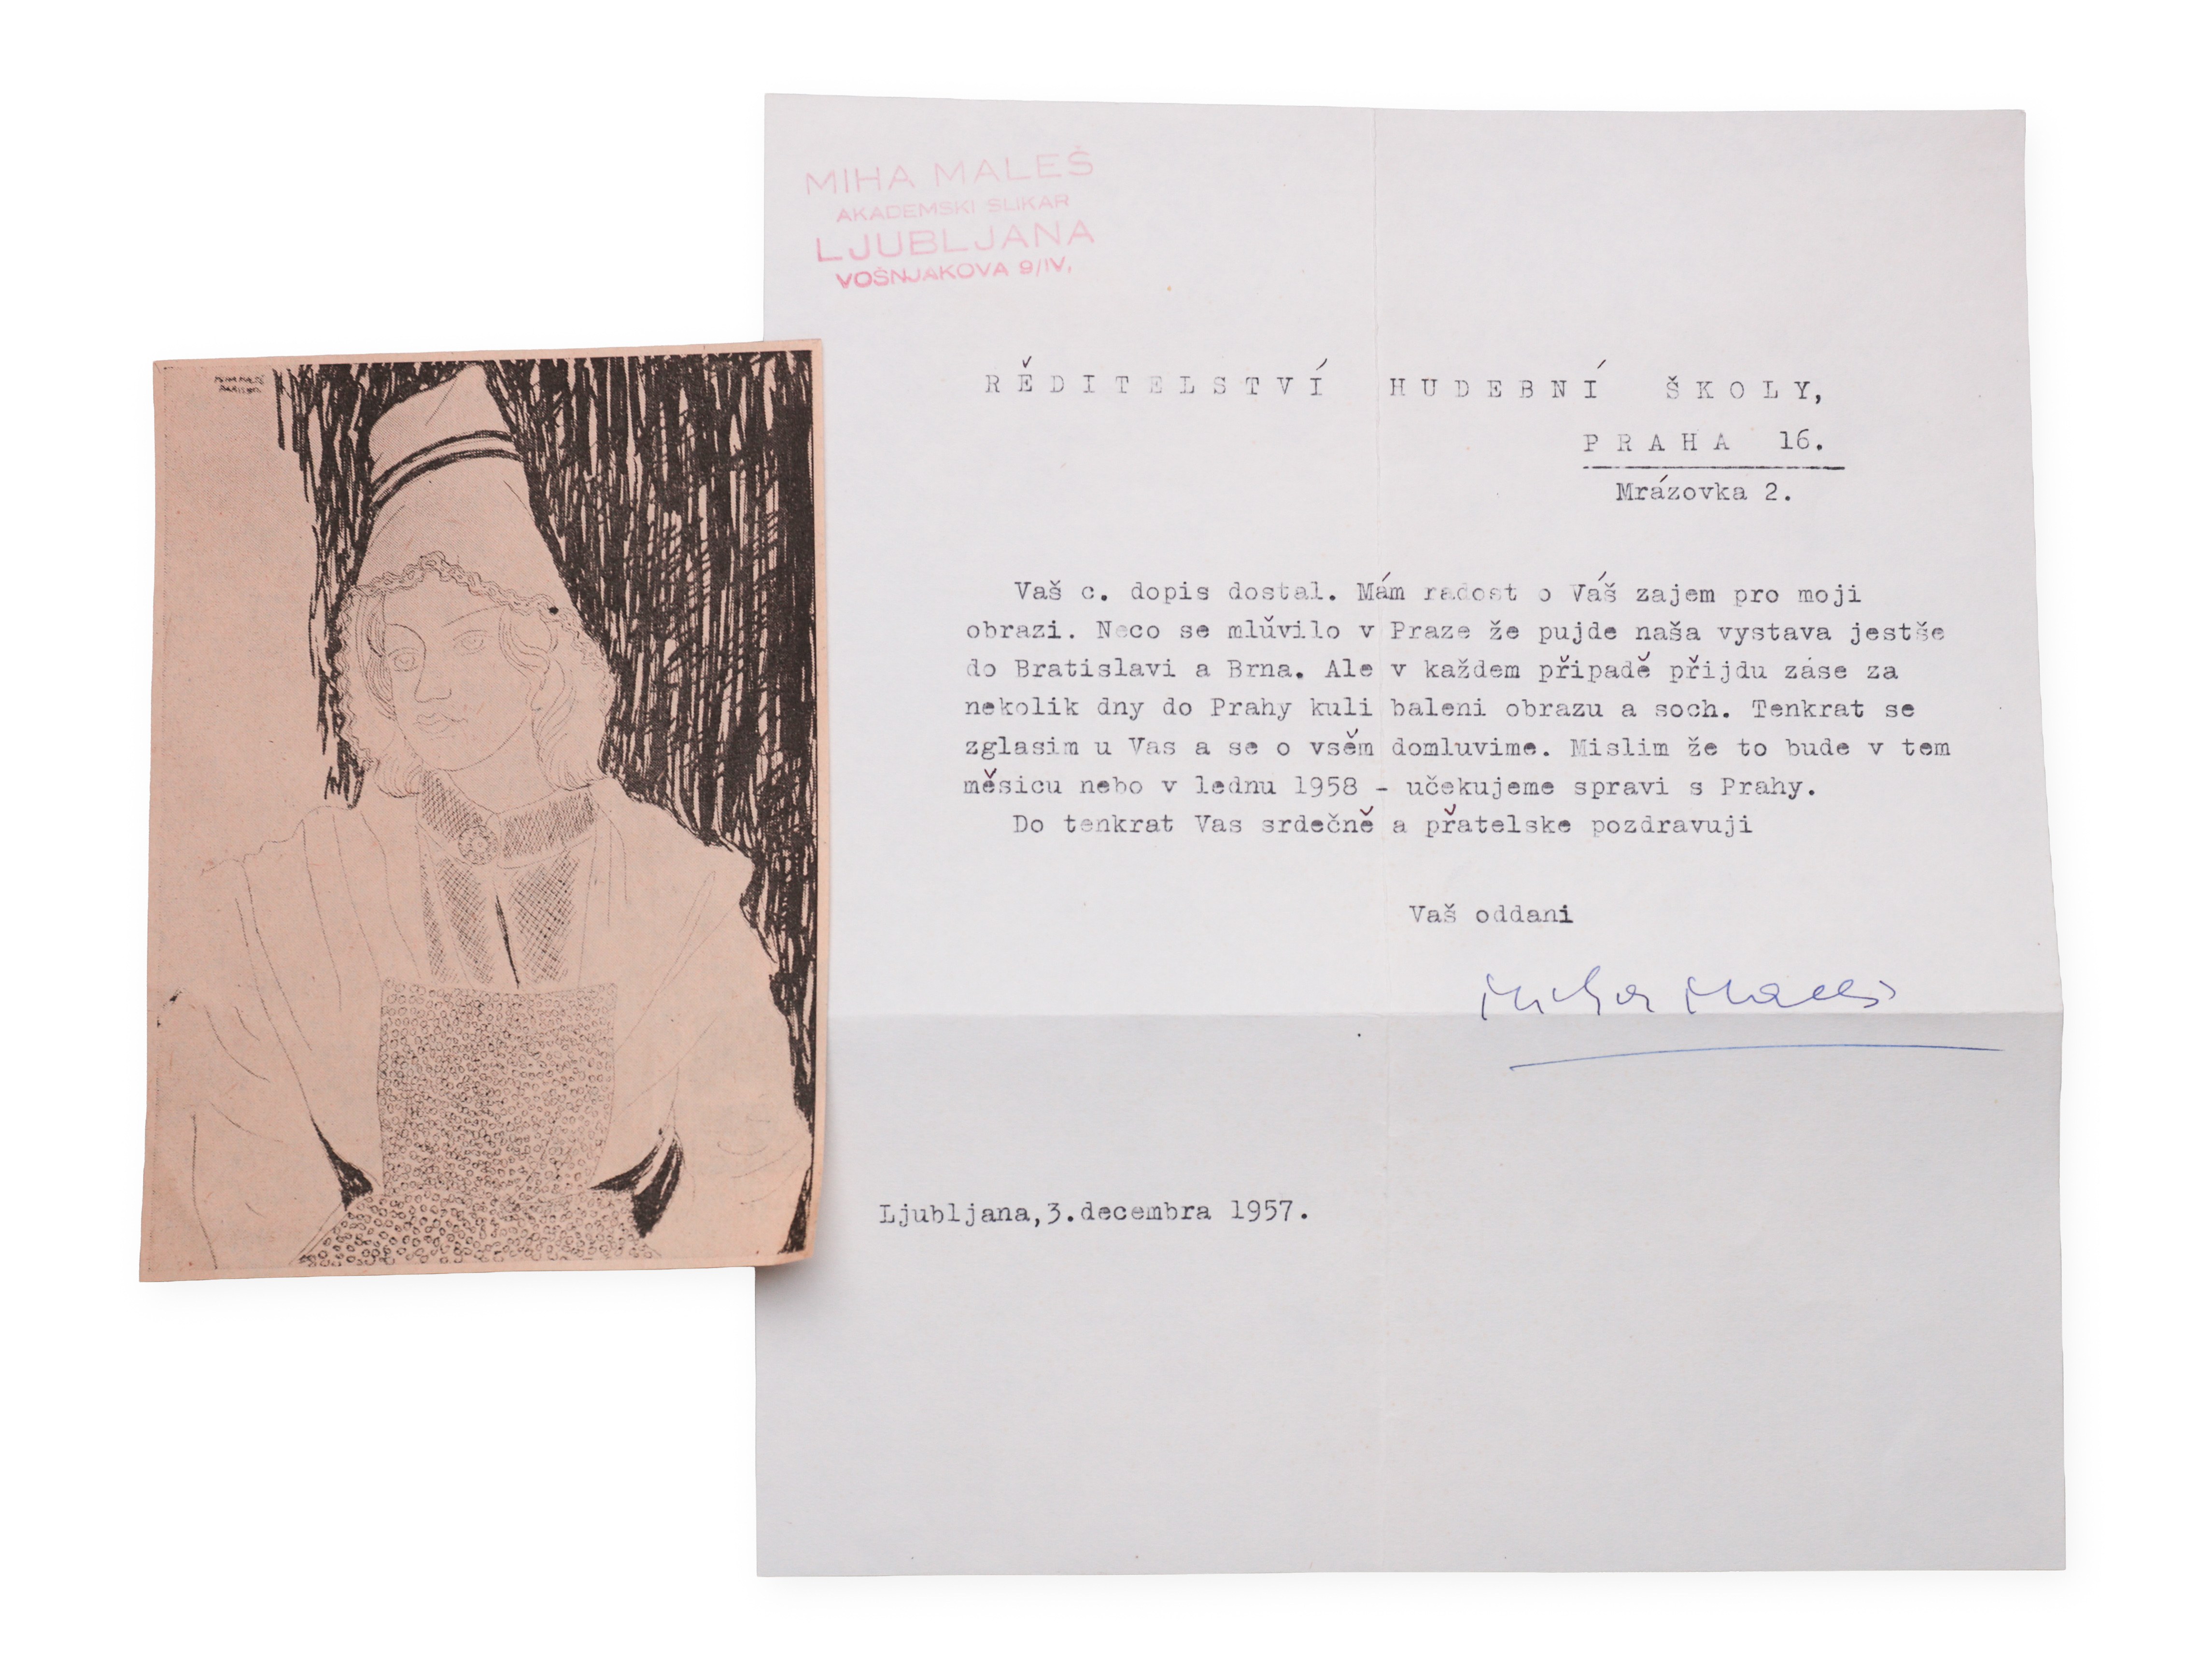 MIHA MALEŠ
AKADEMSKI SLIKAR
LJUBLJANA
VOŠNJAKOVA 9/IV.
RĚDITELSTVÍ HUDEBNÍ ŠKOLY,
PRAHA 16.
Mrázovka 2.
Vaš c. dopis dostal. Mám radost o Váš zajem pro moji
obrazi. Neco se mlǔvilo v Praze že pujde naša vystava jestše
do Bratislavi a Brna. Ale v každem připadě přijdu záse za
nekolik dny do Prahy kuli baleni obrazu a soch. Tenkrat se
zglasim u Vas a se o vsěm domluvime. Mislim že to bude v tem
měsicu nebo v lednu 1958 - učekujeme spravi s Prahy.
Do tenkrat Vas srdečně a přatelske pozdravuji
Vaš oddani
Miha Maleš
Ljubljana,3.decembra 1957.